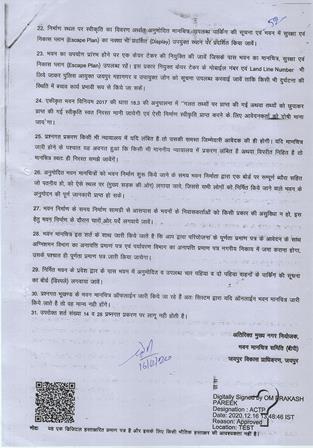 22. निर्माण स्थल पर स्वीकृति का विवरण अर्थात् अनुमोदित मानचित्र, उपलब्ध पार्किंग की सूचना एवं भवन में सुरक्षा एवं
निकास प्लान (Escape Plan) का नक्शा भी प्रदर्शित (Display) उपयुक्त स्थान पर प्रदर्शित किया जावें।
23. भवन का उपयोग प्रारंभ होने पर एक केयर टेकर की नियुक्ति की जावें जिसके पास भवन का मानचित्र, सुरक्षा एवं
निकास प्लान (Escape Plan) उपलब्ध रहें। इस प्रकार नियुक्त केयर टेकर के मोबाईल नंबर एवं Land Line Number भी
लिये जाकर पुलिस आयुक्त जयपुर महानगर व उपायुक्त जोन को सूचना उपलब्ध करवाई जावें ताकि किसी भी दुर्घटना की
स्थिति में बचाव कार्य प्रभावी रूप से किये जा सकें।
24. एकीकृत भवन विनियम 2017 की धारा 18.3 की अनुपालना में "गलत तथ्यों पर प्राप्त की गई अथवा तथ्यों को छुपाकर
प्राप्त की गई स्वीकृति स्वतः निरस्त मानी जायेगी एवं ऐसी निर्माण स्वीकृति प्राप्त करने के लिए आवेदनकर्ता को दोषी माना
जाए गा।
25. प्रश्नगत प्रकरण किसी भी न्यायालय में यदि लंबित है तो उसकी समस्त जिम्मेवारी आवेदक की ही होगी। यदि मानचित्र
जारी होने के पश्चात यह अवगत हुआ कि किसी भी माननीय न्यायालय में प्रकरण लंबित है अथवा विपरीत निहित है तो
मानचित्र स्वतः ही निरस्त समझे जावेंगें।
26. अनुमोदित भवन मानचित्रों को भवन निर्माण शुरू किये जाने के समय भवन निर्माता द्वारा एक बोर्ड पर सम्पूर्ण ब्यौरा सहित
जो पठनीय हो, को ऐसे स्थल पर (मुख्य सड़क की ओर) लगाया जाये, जिससे सभी लोगों को निर्मित किये जाने वाले भवन के
अनुमोदन की पूर्ण जानकारी प्राप्त हो सकें।
27. भवन निर्माण के समय निर्माण सामग्री से आसपास के भवनों के निवासकर्ताओं को किसी प्रकार की असुविधा न हो, इस
हेतु भवन निर्माण के दौरान चारों ओर पर्दे लगवाये जावें।
28. भवन मानचित्र इस शर्त के साथ जारी किये जाते है कि आप द्वारा परियोजना के पूर्णता प्रमाण पत्र के आवेदन के साथ
अग्निशमन विभाग का अनापत्ति प्रमाण पत्र एवं पर्यावरण विभाग का अनापत्ति प्रमाण पत्र नगरीय निकाय में जमा कराना होगा,
उसके पश्चात ही पूर्णता प्रमाण पत्र जारी किया जायेगा।
29. निर्मित भवन के प्रवेश द्वार के पास भवन में अनुमोदित व उपलब्ध चार पहिया व दो पहिया वाहनों के पार्किंग की सूचना
का बोर्ड लगवाया जावें।
30. प्रश्नगत भूखण्ड के भवन मानचित्र ऑफलाईन जारी किये जा रहे हैं अतः सिस्टम द्वारा यदि ऑनलाईन भवन मानचित्र जारी
किये जाते है तो वह मान्य नहीं होंगे।
31. उपरोक्त शर्त संख्या 14 व 28 प्रश्नगत प्रकरण पर लागू नहीं होती है।
अतिरिक्त मुख्य नगर नियोजक,
भवन मानचित्र समिति (बीपी)
जयपुर विकास प्राधिकरण, जयपुर
Digitally Signed by OM PRAKASH
PAREEK
Designation : ACTP
Date: 2020.12.16 13:48:46 IST
Reason: Approved
Location: TEST
नोट: यह एक डिजिटल हस्ताक्षरित प्रमाण पत्र है और इसके लिए किसी भौतिक हस्ताक्षर की आवश्यकता नहीं है।